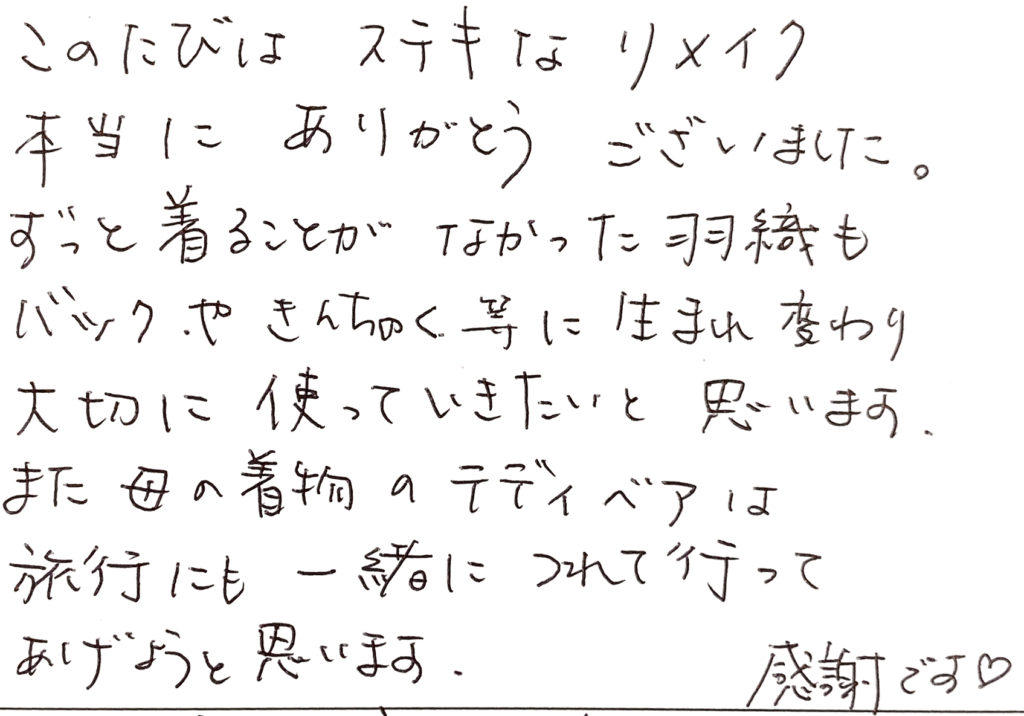 このたびは ステキな リメイク
本当に ありがとう ございました。
ずっと着ることが なかった羽織も
バックや きんちゃく等に 生まれ変わり
大切に 使っていきたいと 思います.
また 母の着物の テディベアは
旅行にも 一緒に つれて行って
あげようと思います.
感謝です♡